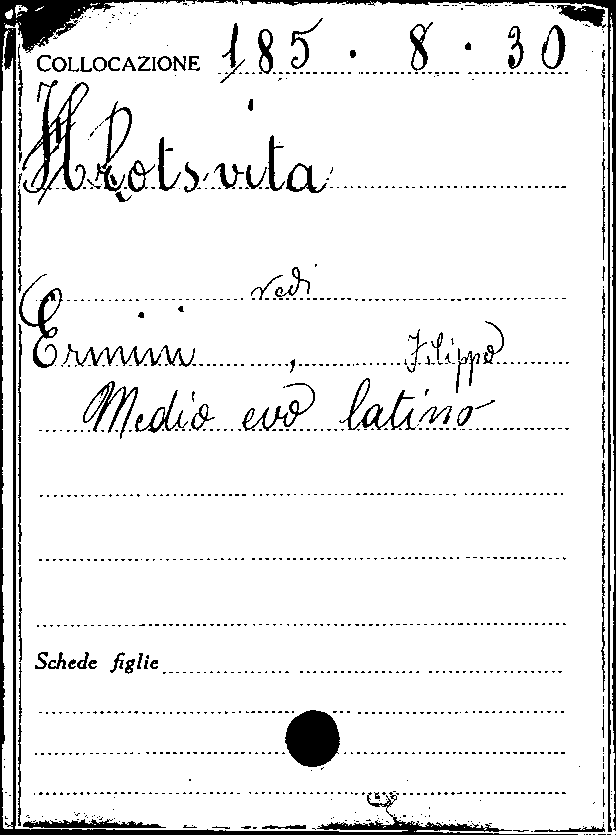 COLLOCAZIONE 185 · 8 · 30
Hrotsvita
vedi
Ermini, Filippo
Medio evo latino
Schede figlie